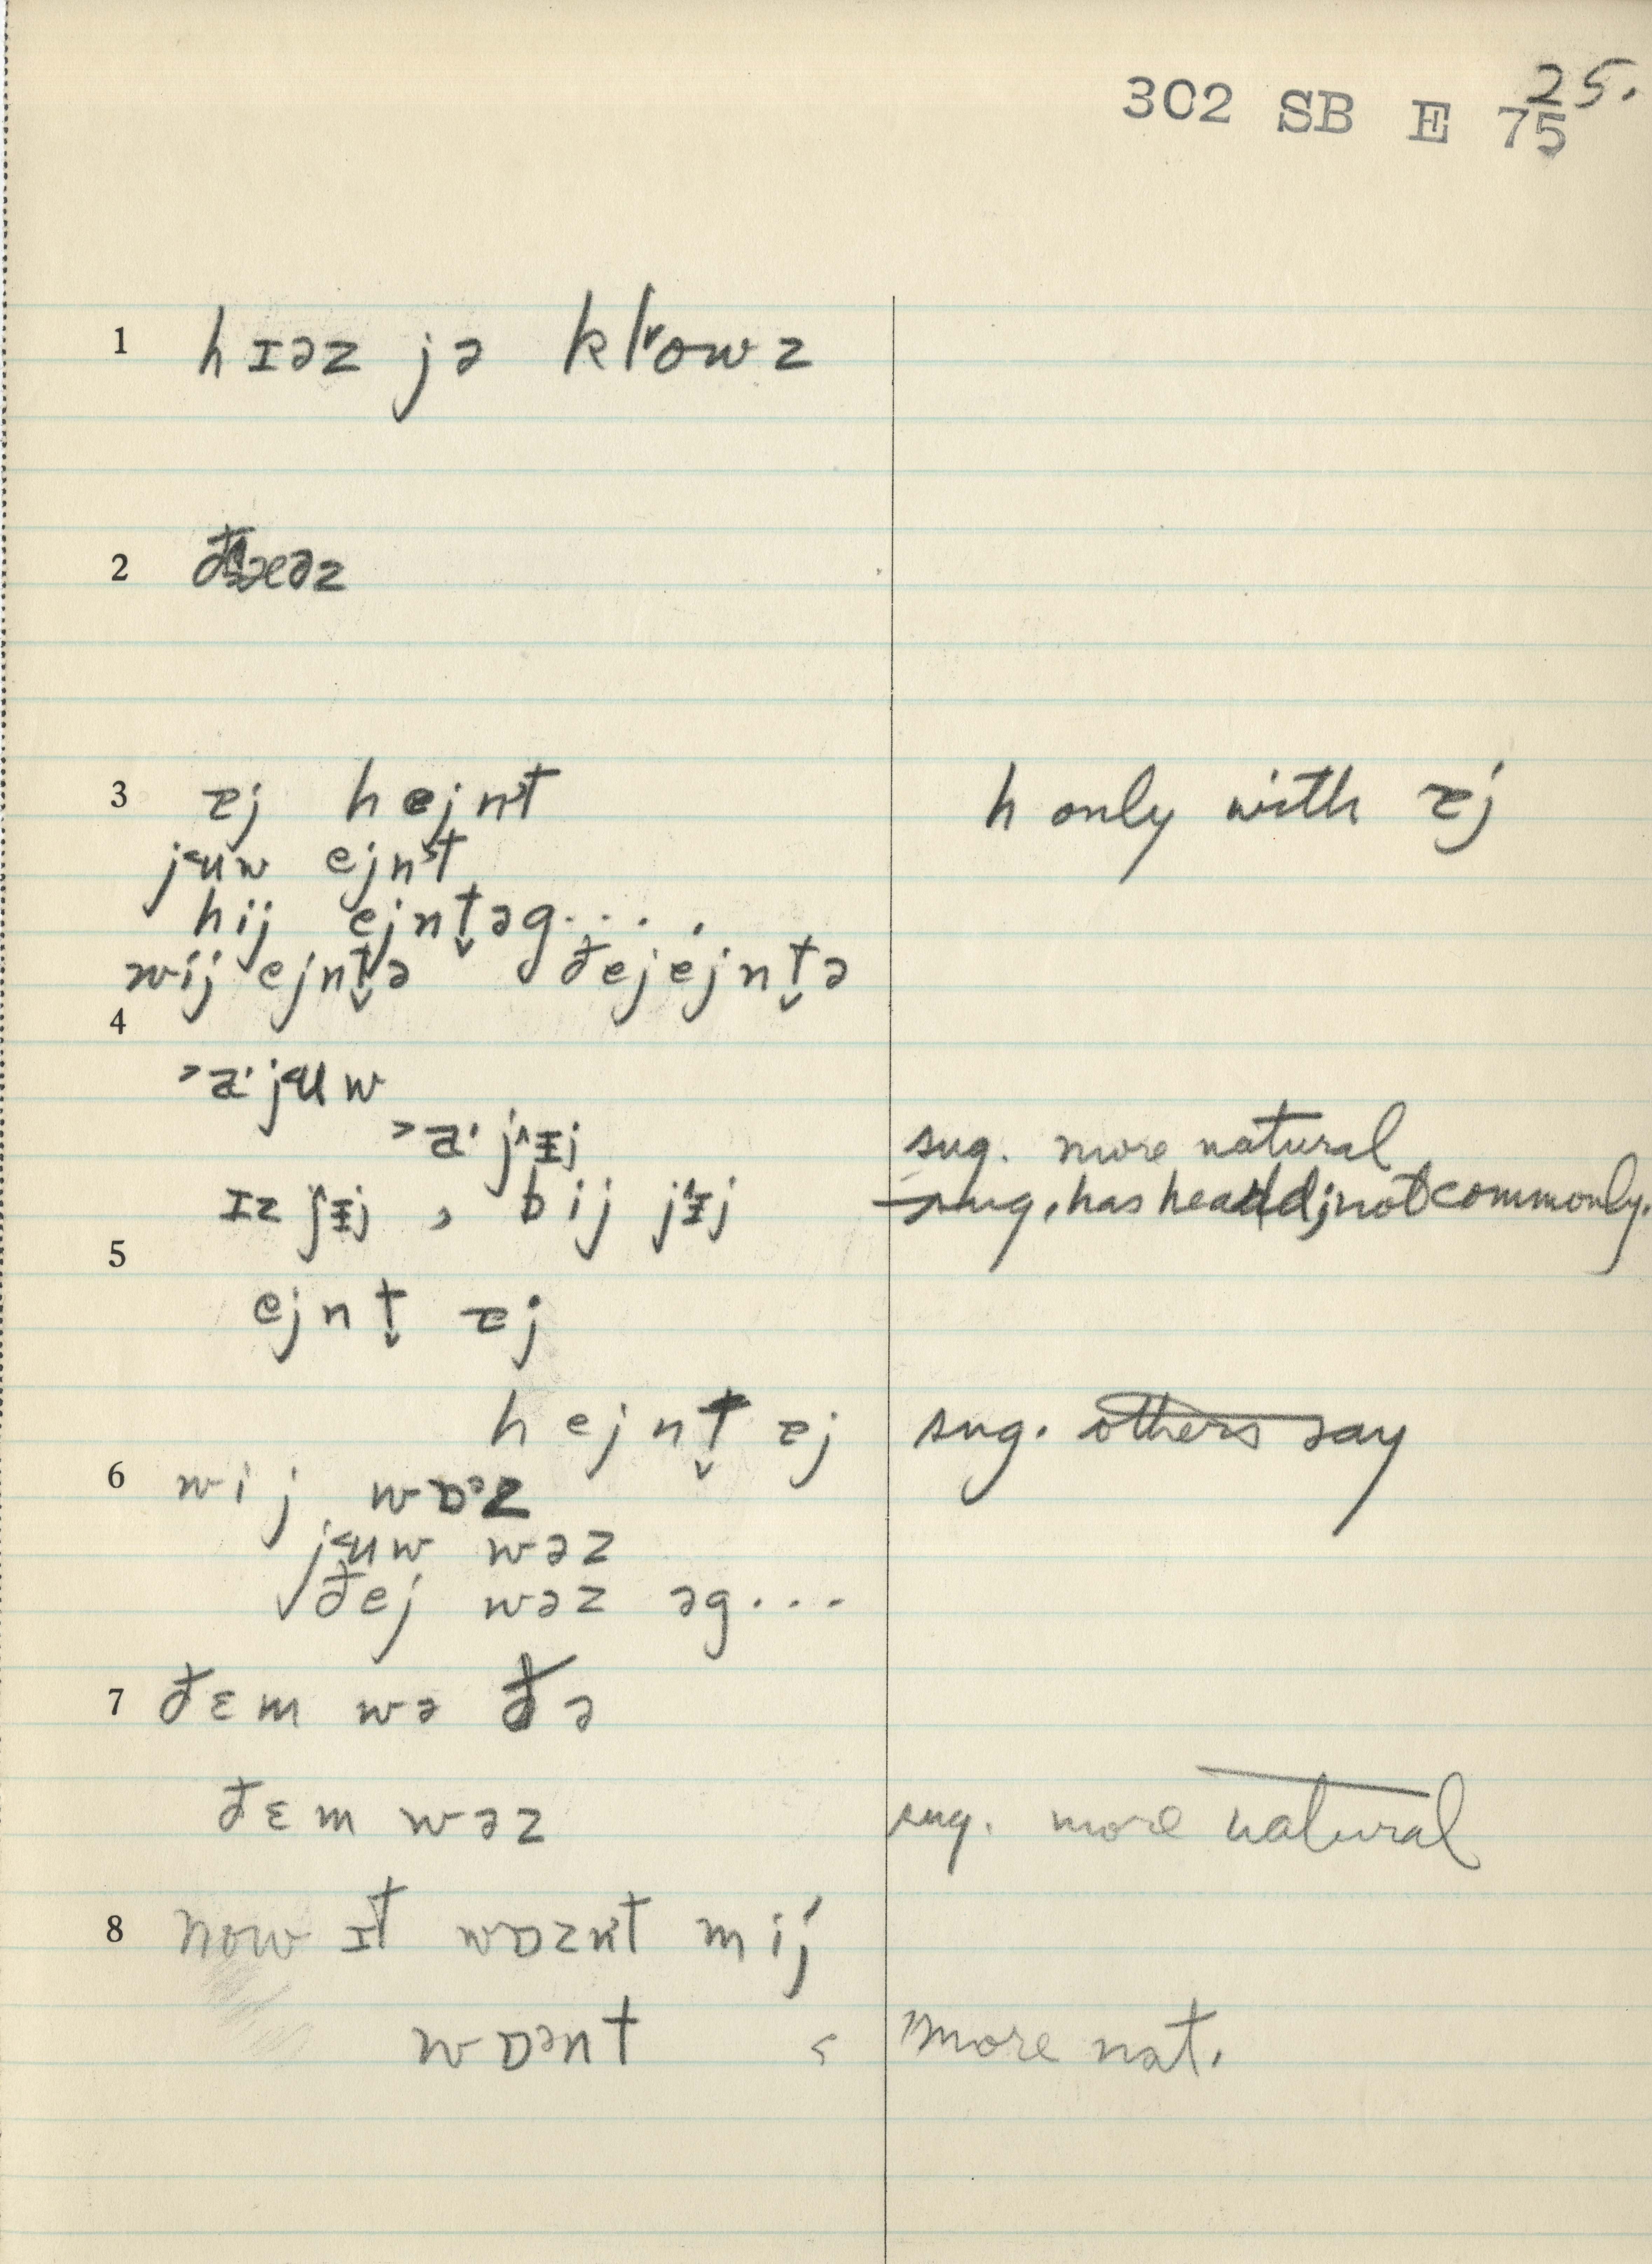 25.
302 SB E 75
1 hɪəz jə kl̆owz
2 đæəz
3 ɐj hejnt h only with ɐj
jʉw ejnt
hij ejnt̬əg....
wij ejnt̬ə đejejnt̬ə
4
>a·jʉw
>a· jɪj sug. more natural
ɪz jɪj, bij jɪj sug. has heard; not commonly.
5
ejnt̬ ɐj
hejnt̬ ɐj sug. others say
6 wij wɒᵊz
jʉw wəz
√đej wəz əg...
7 đɛm wə đə
đɛm wəz sug. more natural
8 now ɪt wɒznt mij
wɒᵊnt < more nat.